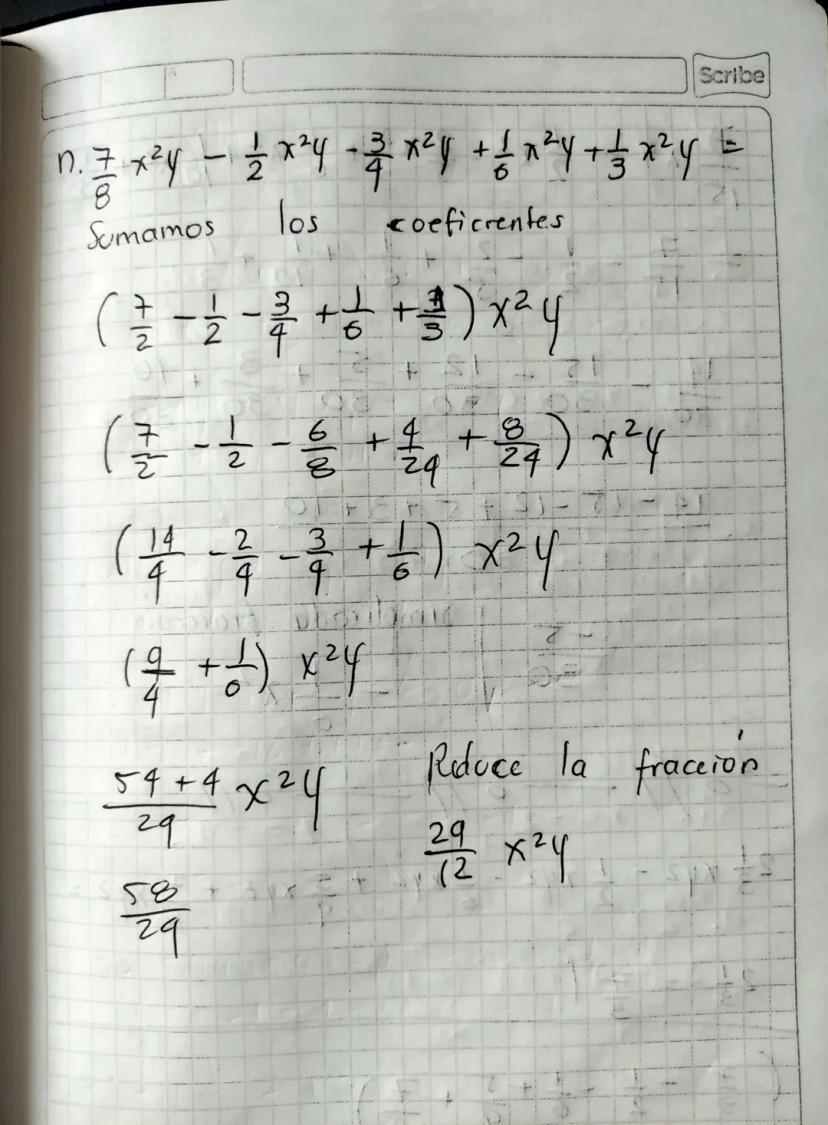 Scribe
n. 7/8 x²y - 1/2 x²y - 3/4 x²y + 1/6 x²y + 1/3 x²y =
Sumamos los coeficientes
(7/2 - 1/2 - 3/4 + 1/6 + 1/3) x²y
(7/2 - 1/2 - 6/8 + 4/24 + 8/24) x²y
(14/4 - 2/4 - 3/4 + 1/6) x²y
(9/4 + 1/6) x²y
54 + 4/24 x²y Reduce la fracción
58/24 29/12 x²y